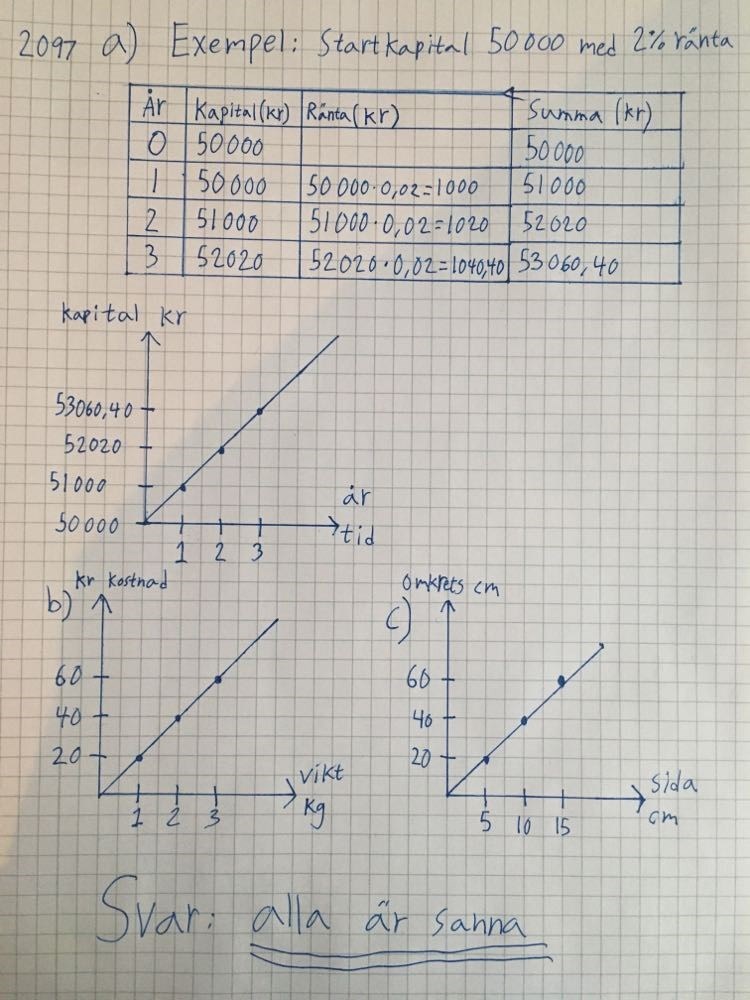 2097 a) Exempel: Startkapital 50000 med 2% ränta
År Kapital(kr) Ränta(kr) Summa (kr)
0 50000 50000
1 50000 50000·0,02=1000 51000
2 51000 51000·0,02=1020 52020
3 52020 52020·0,02=1040,40 53060,40
kapital kr
53060,40
52020
51000
50000
1 2 3
år
tid
b) kr kostnad
60
40
20
1 2 3
vikt
kg
c) Omkrets cm
60
40
20
5 10 15
Sida
cm
Svar: alla är sanna